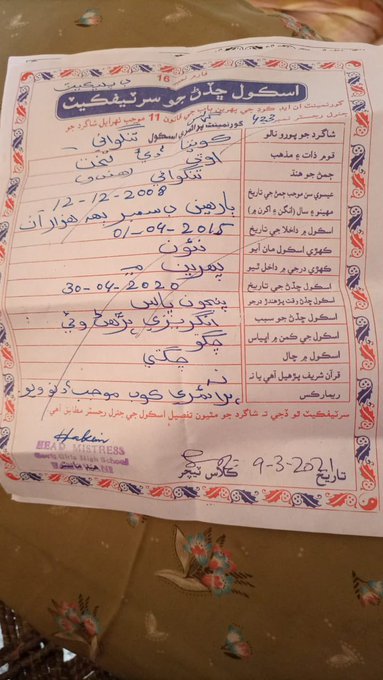 فارم نمبر 16
اسڪول ڇڏڻ جو سرٽيفڪيٽ
گورنمينٽ ان ايڊ ڪوڊ جي پهرين باب جي قانون 11 موجب ٺهرايل شاگرد جو
جنرل رجسٽر نمبر 423 گورنمينٽ پرائمري اسڪول تنگواڻي
شاگرد جو پورو نالو
قوم ذات ۽ مذهب
جمڻ جو هنڌ تنگواڻي
عيسوي سن موجب ڄمڻ جي تاريخ 12-12-2008
مهينو ۽ سال (انگن ۽ اکرن ۾) ٻارهين ڊسمبر ٻه هزار اٺ
اسڪول ۾ داخلا جي تاريخ 01-04-2015
ڪهڙي اسڪول مان آيو نئون
ڪهڙي درجي ۾ داخل ٿيو پهرين ۾
اسڪول ڇڏڻ جي تاريخ 30-04-2020
اسڪول ڇڏڻ وقت پڙهندڙ درجو پنجون پاس
اسڪول ڇڏڻ جو سبب انگريزي پڙهڻ
اسڪول جي ڪمن ۾ اڀياس چڱو
اسڪول ۾ چال چڱي
قرآن شريف پڙهيل آهي يا نه نه
ريمارڪس پرائمري ڪوڊ موجب ڏنو ويو
سرٽيفڪيٽ ٿو ڏجي ته شاگرد جو مٿيون تفصيل اسڪول جي جنرل رجسٽر مطابق آهي
تاريخ 9-3-2021 ڪلاس ٽيچر
Hakim
HEAD MISTRESS
Govt: Girls High School
هيڊ ماستر